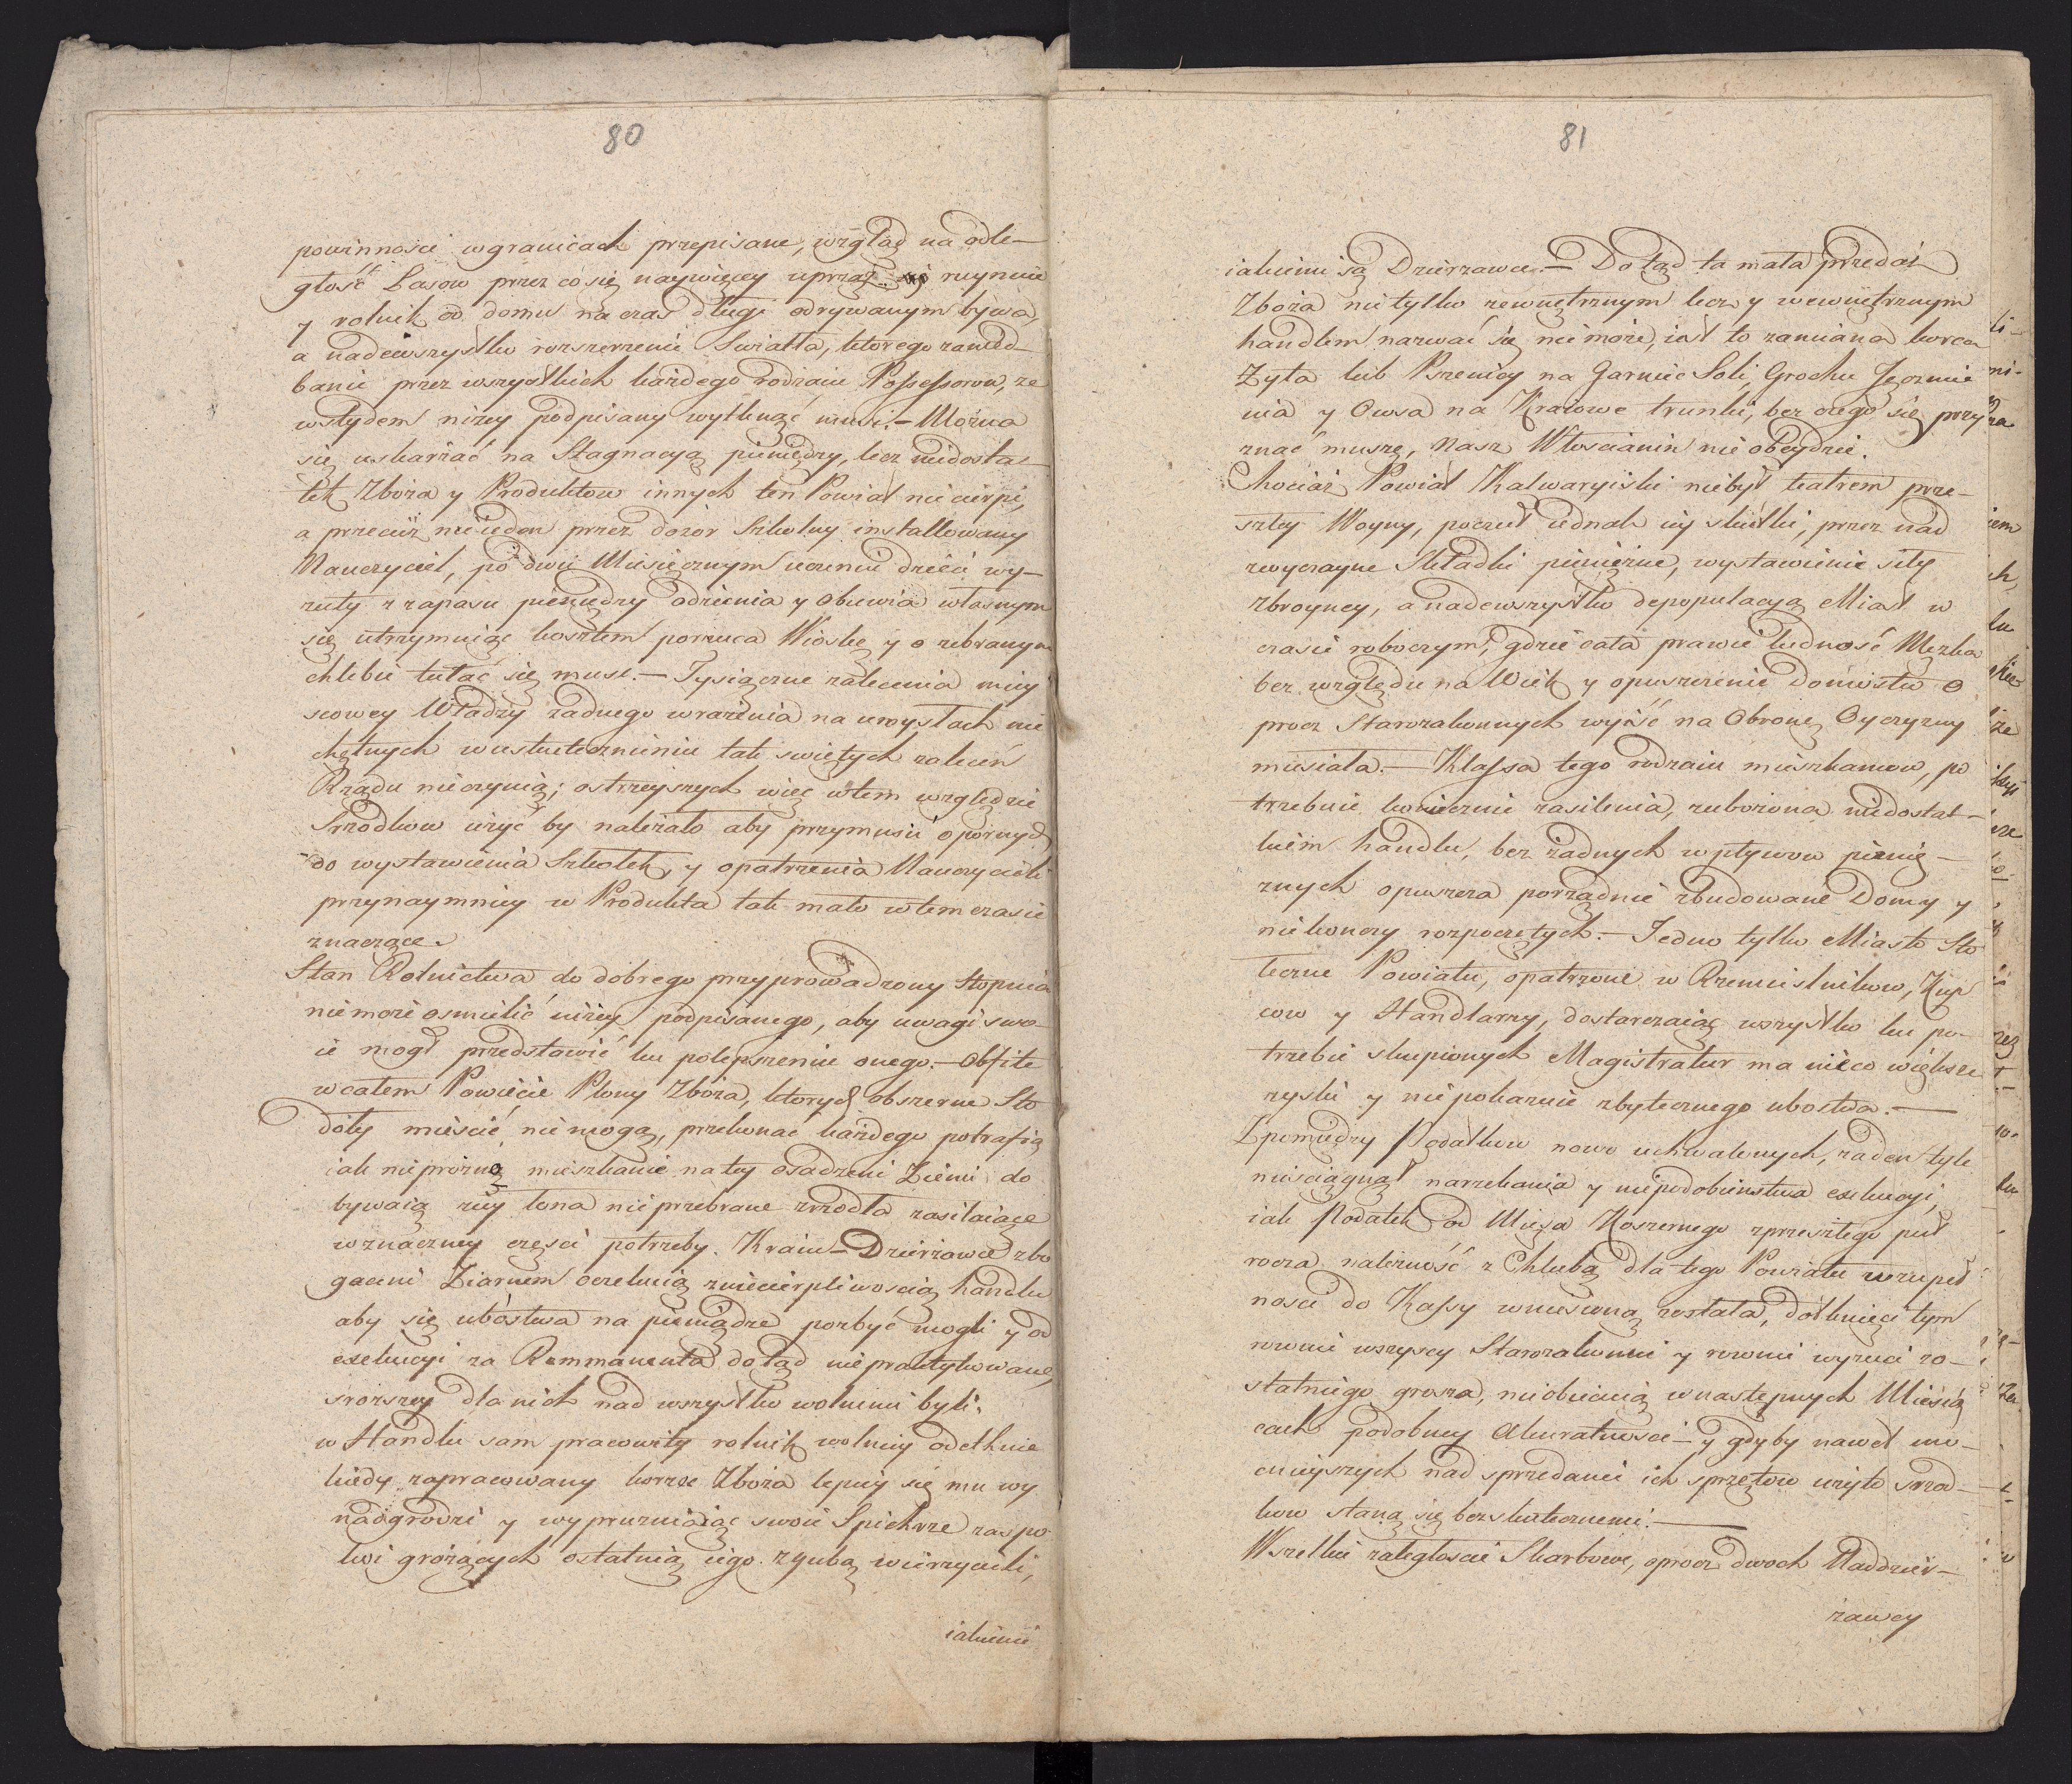 80
powinnosci w granicach przepisane, wzgląd na odle-
głość Lasow przez co się naywięcey uprząż ruynuie
y rolnik od domu na czas długi odrywanym bywa,
a nadewszystko rozszerzenie Swiatła, ktorego zanied-
banie przez wszystkich każdego rodzaiu Possessorow, ze
wstydem niżey podpisany wytknąć musi. - Można
się uskarżać na Stagnacyą pieniędzy, lecz niedosta-
tek Zboża y Produktow innych ten Powiat nie cierpi,
a przecież nieieden przez dozor Szkolny installowany
Nauczyciel, po dwu Miesięcznym uczeniu dzieci wy-
zuty z zapasu pieniędzy odzienia y obuwia własnym
się utrzymuiąc kosztem porzuca Wioskę y o zebranym
chlebie tułać się musi. - Tysiączne zalecenia miey
scowey Władzy żadnego wrażenia na umysłach nie
chętnych w uskutecznieniu tak swiętych zaleceń
Rządu nieczynią; ostrzeyszych więc w tem względzie
Srzodkow użyć by należało aby przymusić opornych
do wystawienia Szkołek, y opatrzenia Nauczycieli
przynaymniey w Produkta tak mało w tem czasie
znaczące.
Stan Rolnictwa do dobrego przyprowadzony Stopnia
niemoże osmielić niżey podpisanego, aby uwagi swo-
ie mogł przedstawić ku polepszeniu onego. - Obfite
w całem Powiecie Plony Zboża, ktorych obszerne Sto
doły mieścić nie mogą, przekonać każdego potrafią
iak nieprożno mieszkanie na tey osadzeni Ziemi do
bywaią z iey łona nieprzebrane zrzodła zasilaiące
w znaczney części potrzeby Kraiu - Dzierżawce zbo
gaceni Ziarnem oczekuią z niecierpliwoscią handlu
aby się ubóstwa na pieniądze pozbyć mogli y od
exekucyi za Remmanenta dotąd niepraktykowane,
sroższey dla nich nad wszystko wolnemi byli.
w Handlu sam pracowity rolnik wolniey odetknie
kiedy zapracowany korzec Zboża lepiey się mu wy
nadgrodzi y wyprużniaiąc swoie Spichrze zaspo
koi grożących ostatnią iego zgubą wierzycieli,
iakiemi
81
iakiemi są Dzierzawce. - Dotąd ta mała przedaż
Zboża nie tylko zewnętrznym lecz y wewnętrznym
handlem nazwać się nie może, iest to zamiana korca
Żyta lub Pszenicy na Garniec Soli, Grochu Jęczmie
nia y Owsa na Kraiowe trunki, bez czego się przy
znać muszę, Nasz Włoscianin nie obeydzie.
Chociaż Powiat Kalwaryiski niebył teatrem prze-
szłey Woyny, poczuł iednak iey skutki, przez nad
zwyczayne Składki pieniężne, wystawienie siły
zbroyney, a nadewszystko depopulacyą Miast w
czasie roboczym, gdzie cała prawie ludność Męzka
bez względu na Wiek y opuszczenie Domostw o
procz Starozakonnych wyiść na Obronę Oyczyzny
musiała. - Klassa tego rodzaiu mieszkancow, po
trzebuie koniecznie zasilenia, zubożona niedostat-
kiem handlu, bez żadnych wpływow pienię-
żnych opuszcza porządnie zbudowane Domy y
niekonczy rozpoczętych. - Jedno tylko Miasto Sto
łeczne Powiatu, opatrzone w Rzemieslnikow, Kup
cow y Handlarzy, dostarczaiąc wszystko ku po-
trzebie skupionych Magistratur ma nieco większe
zyski y niepokazuie zbytecznego ubostwa. -
Zpomiędzy Podatkow nowo uchwalonych, żaden tyle
nieściągnął narzekania y niepodobienstwa exekucyi,
iak Podatek od Mięsa Koszernego zprzeszłego puł
rocza należność z Chlubą dla tego Powiatu w zupeł
nosci do Kassy wniesioną została, dotknięci tym
rownie wszyscy Starozakonni y rownie wyzuci zo-
statniego grosza, nieobiecuią w następnych Miesią
cach podobney Akuratnosci - y gdyby nawet mo-
cnieyszych nad sprzedanie ich sprzętow użyto srzod-
kow staną się bezskutecznemi. -
Wszelkie zaległoscie Skarbowe, oprocz dwoch Naddzier-
zawcy